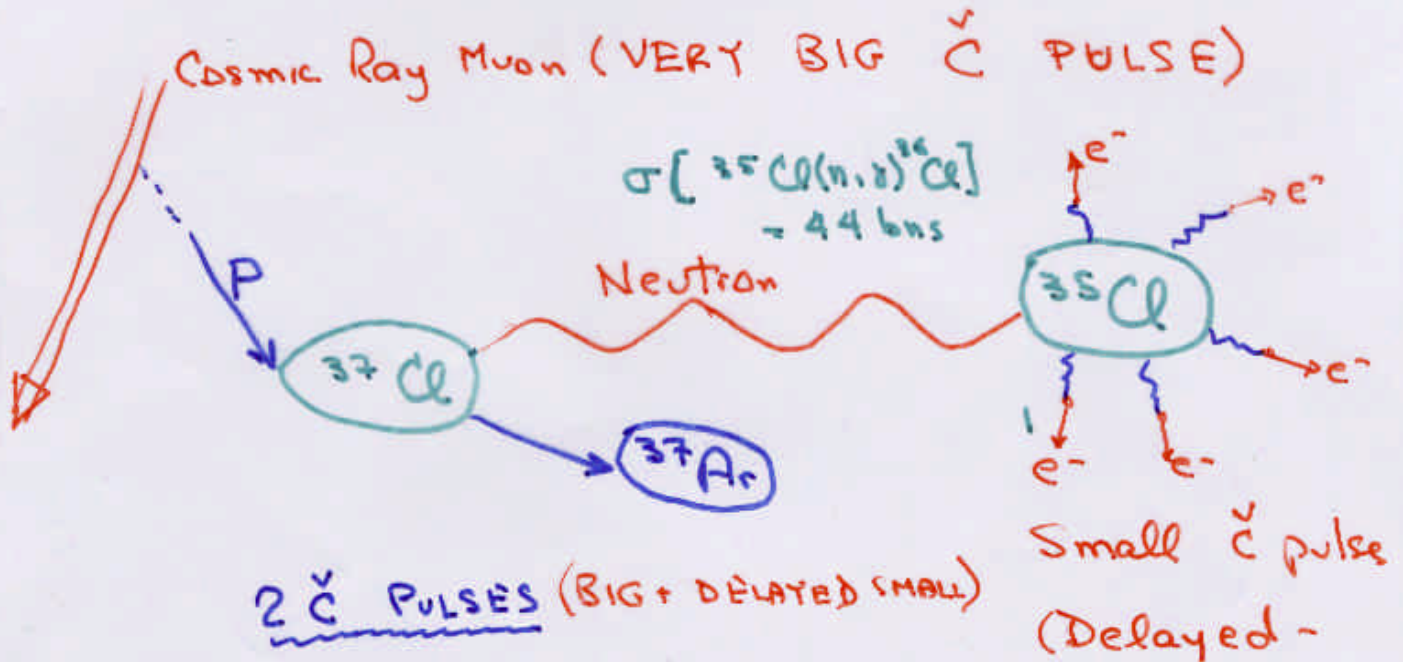 Cosmic Ray Muon (VERY BIG Č PULSE)
σ[ ³⁵Cl(n,γ)³⁶Cl]
= 44 bns
e⁻
e⁻
P
Neutron
³⁵Cl
³⁷Cl
e⁻
³⁷Ar
e⁻
e⁻
Small Č pulse
2 Č PULSES (BIG + DELAYED SMALL)
(Delayed -